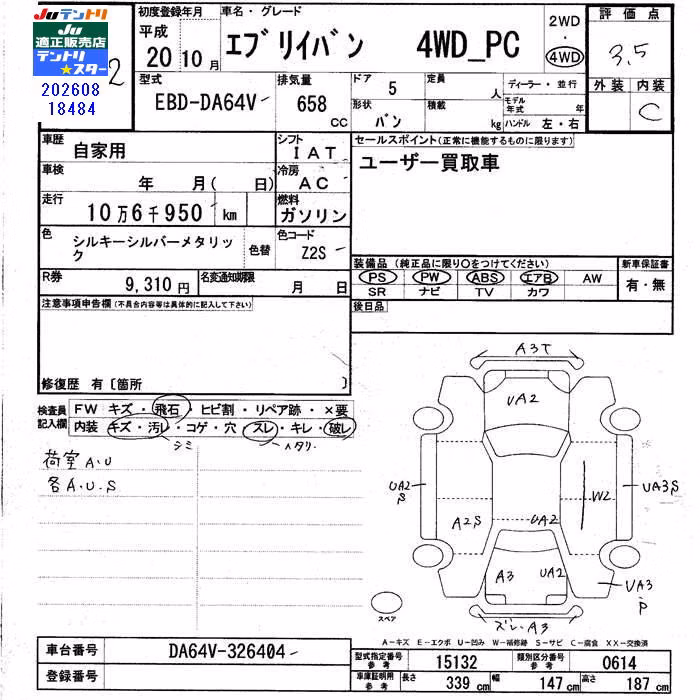 Juテントリ
Ju
適正販売店
テントリ
★スター
202608
18484
初度登録年月
平成
20 10 月
車名・グレード
エブリイバン 4WD_PC
2WD
・
4WD
評価点
3.5
外装 内装
C
型式
EBD-DA64V
排気量
658
CC
ドア 5
定員
人
形状
バン
積載
kg
ディーラー・並行
モデル
年式 年
ハンドル 左・右
車歴
自家用
シフト
IAT
車検
年 月( 日)
冷房
AC
走行
10万6千950 km
燃料
ガソリン
色
シルキーシルバーメタリッ
ク
色替
色コード
Z2S
R券
9,310円
名変通知期限
月 日
セールスポイント(正常に機能するものに限ります)
ユーザー買取車
装備品 (純正品に限り○をつけてください)
PS PW ABS エアB AW
SR ナビ TV カワ
新車保証書
有・無
後日品
注意事項申告欄(不具合内容等は具体的に記入して下さい)
修復歴 有〔箇所 〕
検査員
記入欄
FW キズ・飛石・ヒビ割・リペア跡・×要
内装 キズ・汚レ・コゲ・穴 スレ・キレ・破レ
シミ ヘタリ
荷室A.U
各A.U.S
A3T
UA2
UA2
S
UA3S
W2
A2S
UA2
A3
UA2
UA3
P
ズレ.A3
スペア
A-キズ E-エクボ U-凹み W-補修跡 S-サビ C-腐食 XX-交換済
車台番号
DA64V-326404
登録番号
型式指定番号
参考
15132
類別区分番号
参考
0614
車庫証明用
参考
長さ 339 cm
幅 147 cm
高さ 187 cm